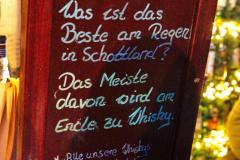 Was ist das
Beste am Regen
in Schottland?
Das Meiste
davon wird am
Ende zu Whisky.
* Alle unsere Whiskys